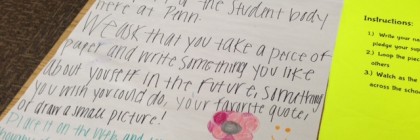 the student body
here at Penn.
We ask that you take a piece of
paper and write something you like
about yourself in the future, something
you wish you could do, your favorite quote,
or draw a small picture!
Place it on the
Instructions:
1.) Write your
pledge your
2.) Loop the
others
3.) Watch as the
across the